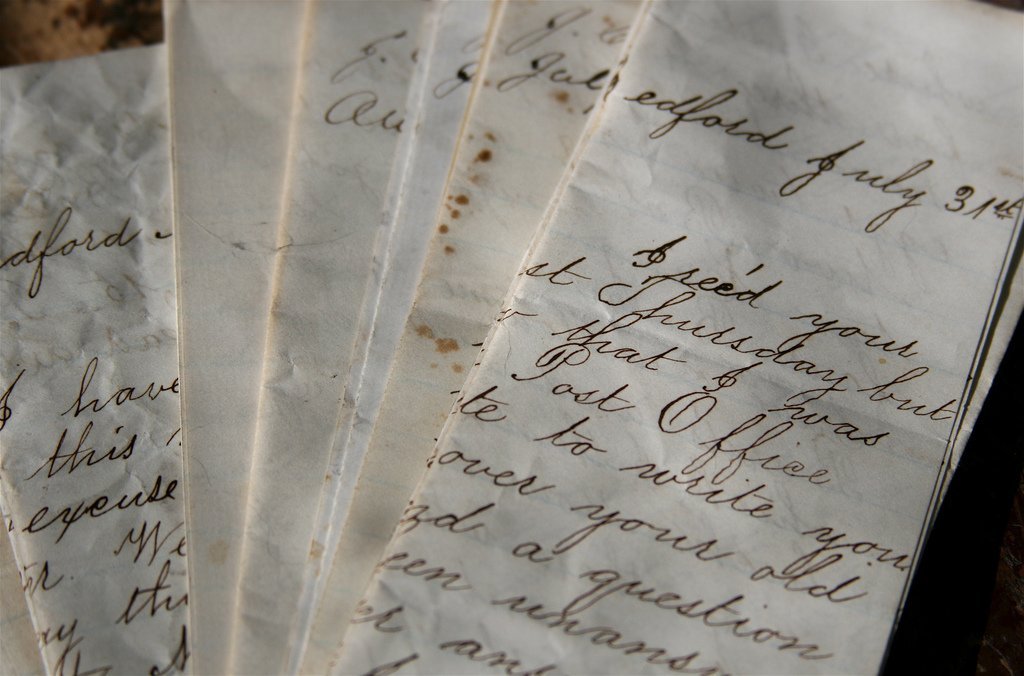 dford.
I have
this
excuse
r. We
ay th
J.
Au
J.
July
edford July 31st
I rec'd your
st Thursday but
r that I was
Post Office
te to write you
over your old
nd a question
een unansw
er ans